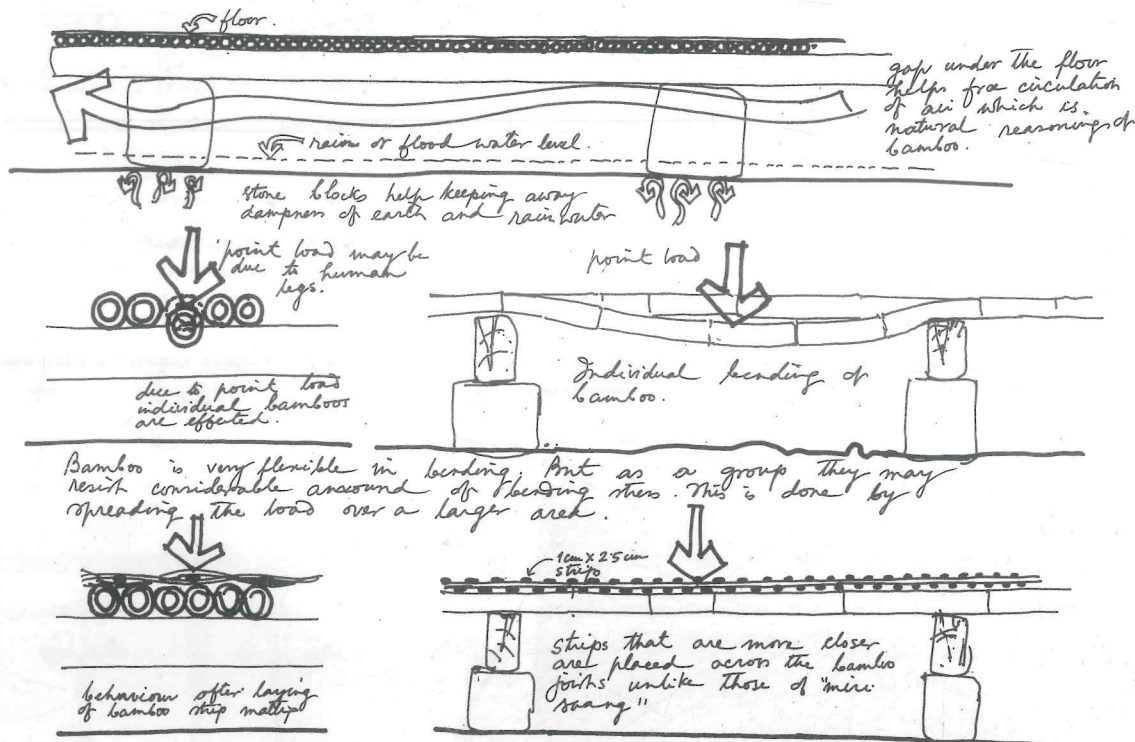 floor.
gap under the floor
helps free circulation
of air which is
natural reasonings of
bamboo.
rains or flood water level.
stone blocks help keeping away
dampness of earth and rain water
point load may be
due to human
legs.
point load
due to point load
individual bamboos
are effected.
Individual bending of
bamboo.
Bamboo is very flexible in bending. But as a group they may
resist considerable of bending stress. This is done by
spreading the load over a larger area.
1cm x 2.5cm
strips
behaviour after laying
of bamboo strip
strips that are more closer
are placed across the bamboo
joists unlike those of "miri
"